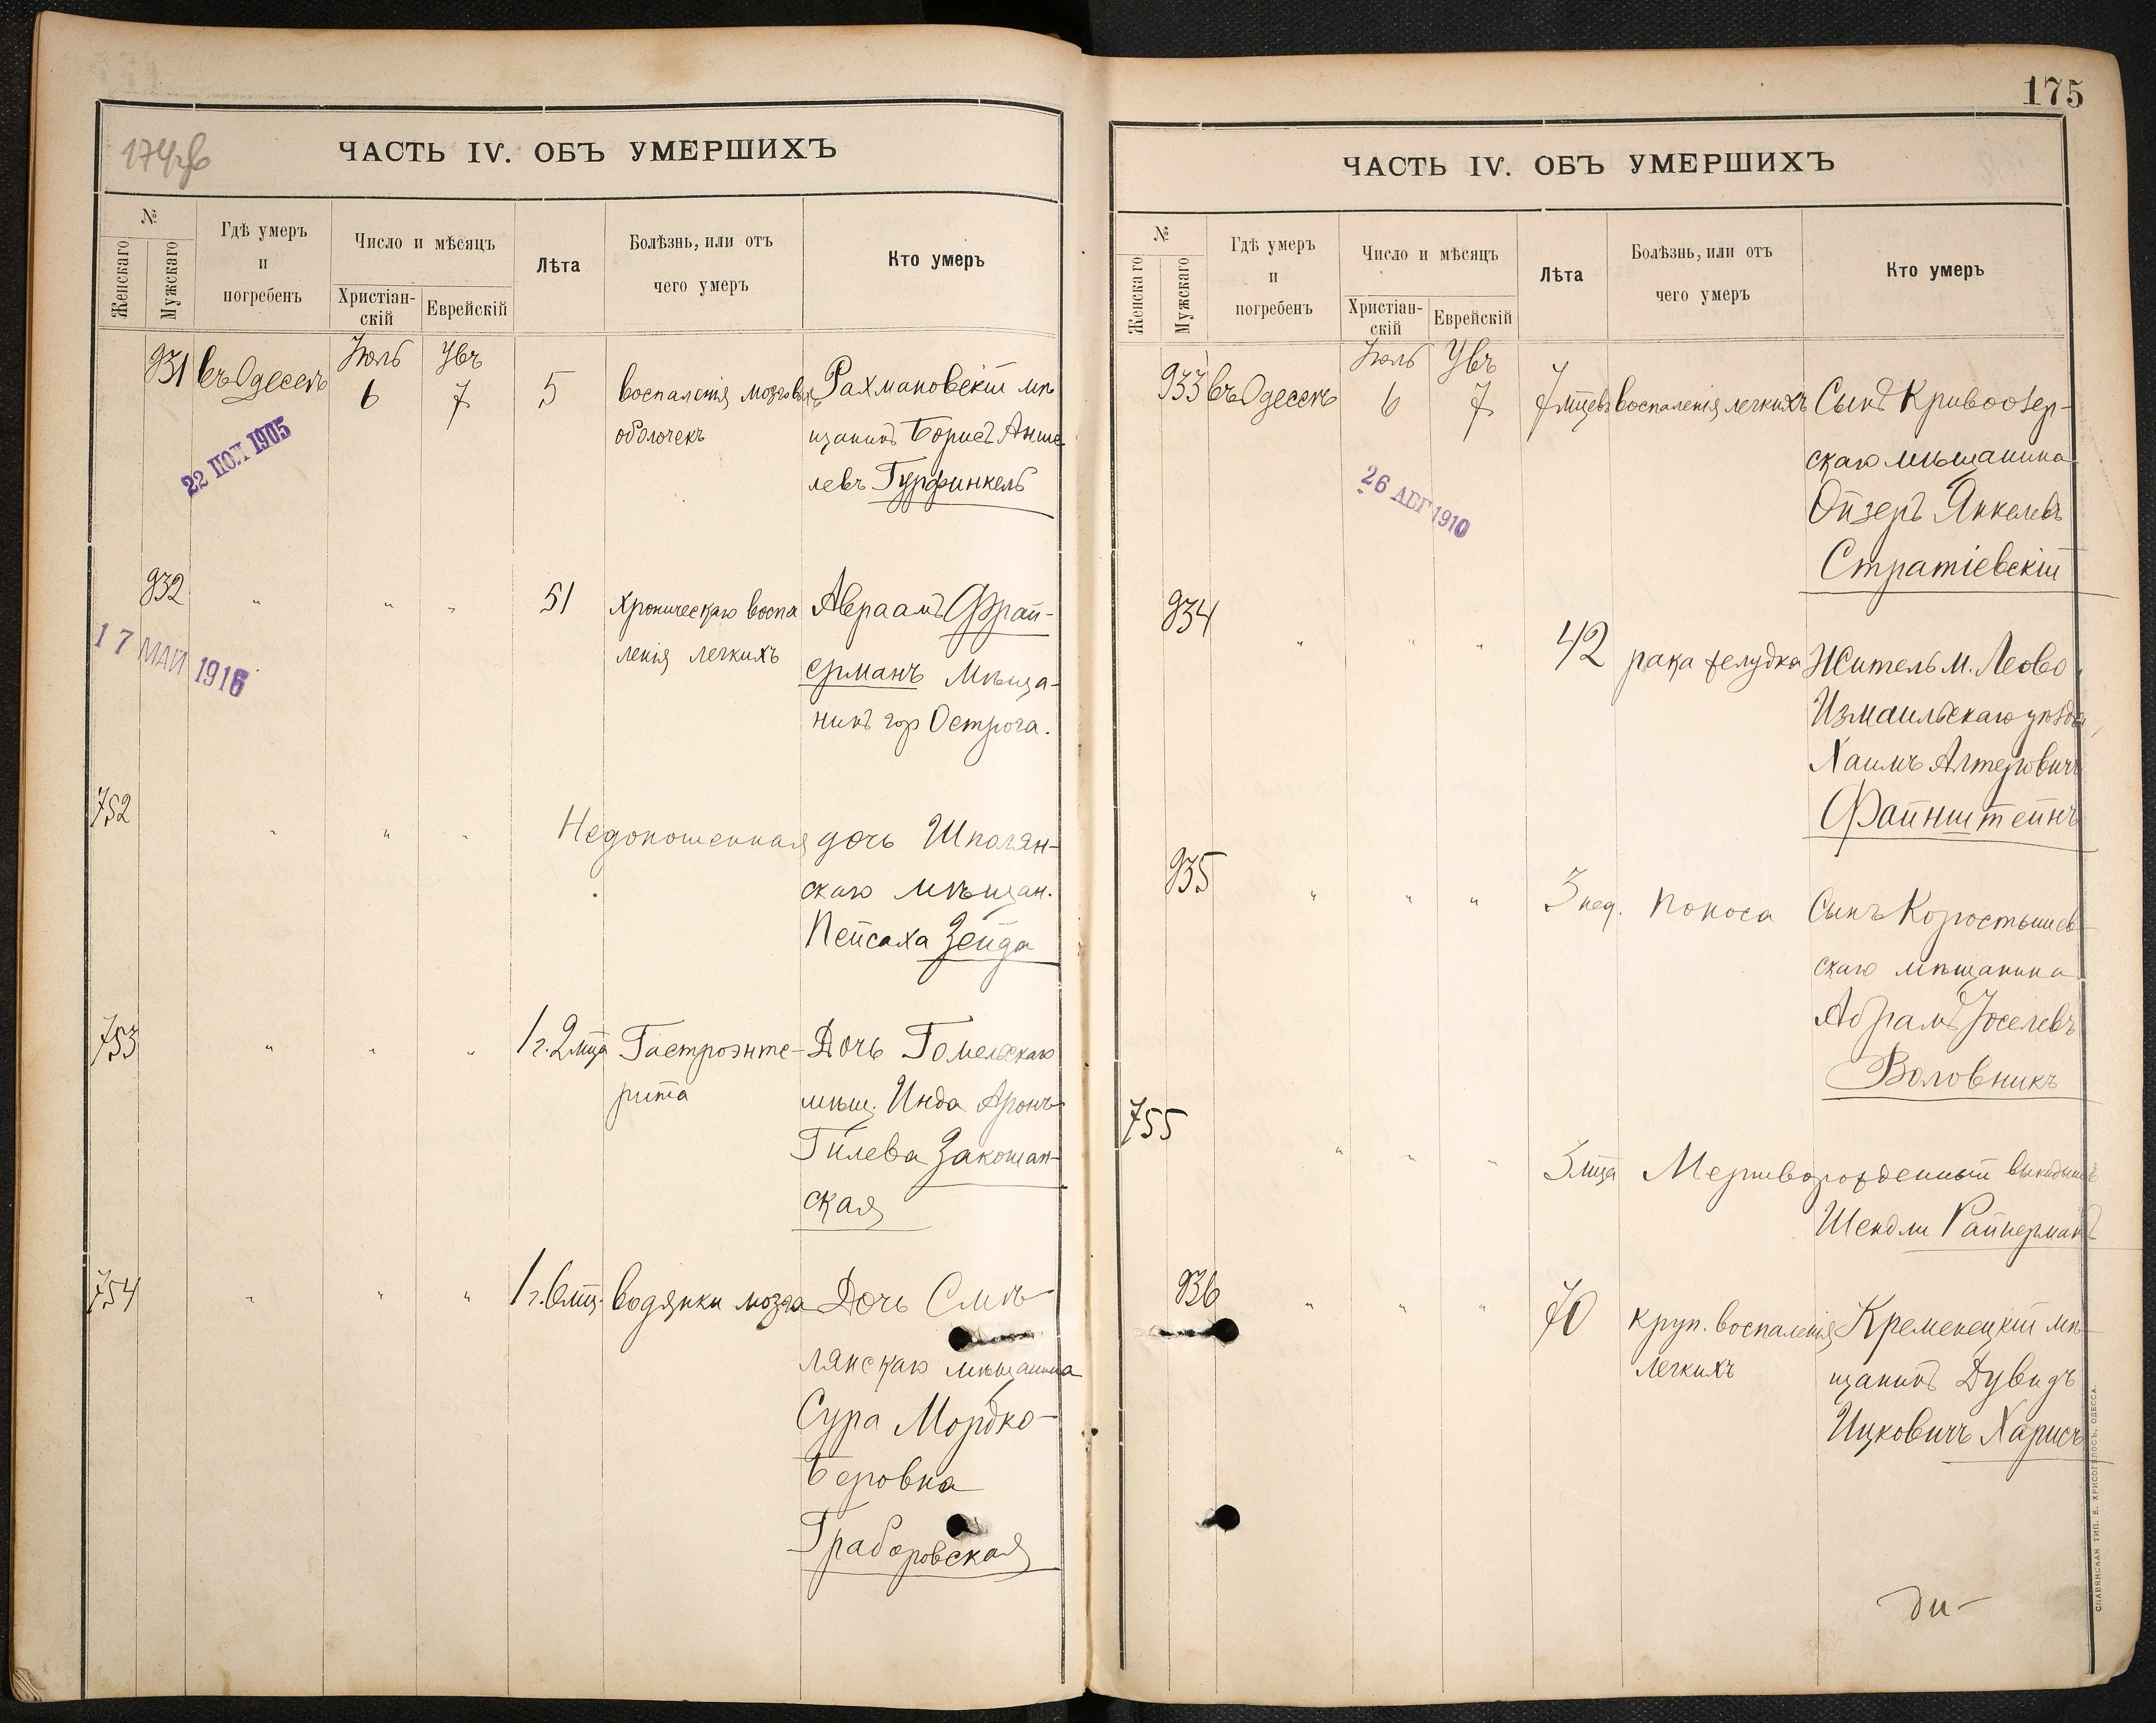 174об
ЧАСТЬ IV. ОБЪ УМЕРШИХЪ
№
Женскаго
Мужскаго
Гдѣ умеръ
и
погребенъ
Число и мѣсяцъ
Христіан-
скій
Еврейскій
Лѣта
Болѣзнь, или отъ
чего умеръ
Кто умеръ
Іюль Увъ
931 въ Одессѣ 6 7 5 воспаленія мозговыхъ Рахмановскій мѣ
оболочекъ щанинъ Борисъ Анше
левъ Гурфинкель
22 ИЮЛ 1905
932 " " " 51 хроническаго воспа Авраамъ Фрай-
ленія легкихъ ерманъ Мѣща-
нинъ гор Острога.
17 МАЙ 1916
752 " " " Недоношенная дочь Шполян-
скаго мѣщан.
Пейсаха Зейда
753 " " " 1 г. 2 мца Гастроэнте- Дочь Гомельскаго
рита мѣщ. Инда Аронъ
Гилева Закошан-
ская
754 " " " 1 г. 6 мц. водянки мозга Дочь Смѣ
лянскаго мѣщанина
Сура Мордко-
Беровна
Граборовская
175
ЧАСТЬ IV. ОБЪ УМЕРШИХЪ
№
Женскаго
Мужскаго
Гдѣ умеръ
и
погребенъ
Число и мѣсяцъ
Христіан-
скій
Еврейскій
Лѣта
Болѣзнь, или отъ
чего умеръ
Кто умеръ
Іюль Увъ
933 въ Одессѣ 6 7 7 мцевъ воспаленія легкихъ Сынъ Кривоозер-
скаго мѣщанина
Ойзеръ Янкелевъ
Стратіевскій
26 АВГ 1910
934 " " " 42 рака желудка Житель м. Леово
Измаильскаго уѣзда
Хаимъ Алтеровичъ
Файнштейнъ
935 " " " 3 нед. поноса Сынъ Коростышев-
скаго мѣщанина
Абрамъ Іоселевъ
Воловникъ
755 " " " 3 мца Мертворожденный выкидышъ
Шендли Райнерманъ
936 " " " 70 круп. воспаленія Кременецкій мѣ-
легкихъ щанинъ Дувидъ
Ицковичъ Харисъ
СЛАВЯНСКАЯ ТИП. Е. ХРИСОГЕЛОСЪ, ОДЕССА.